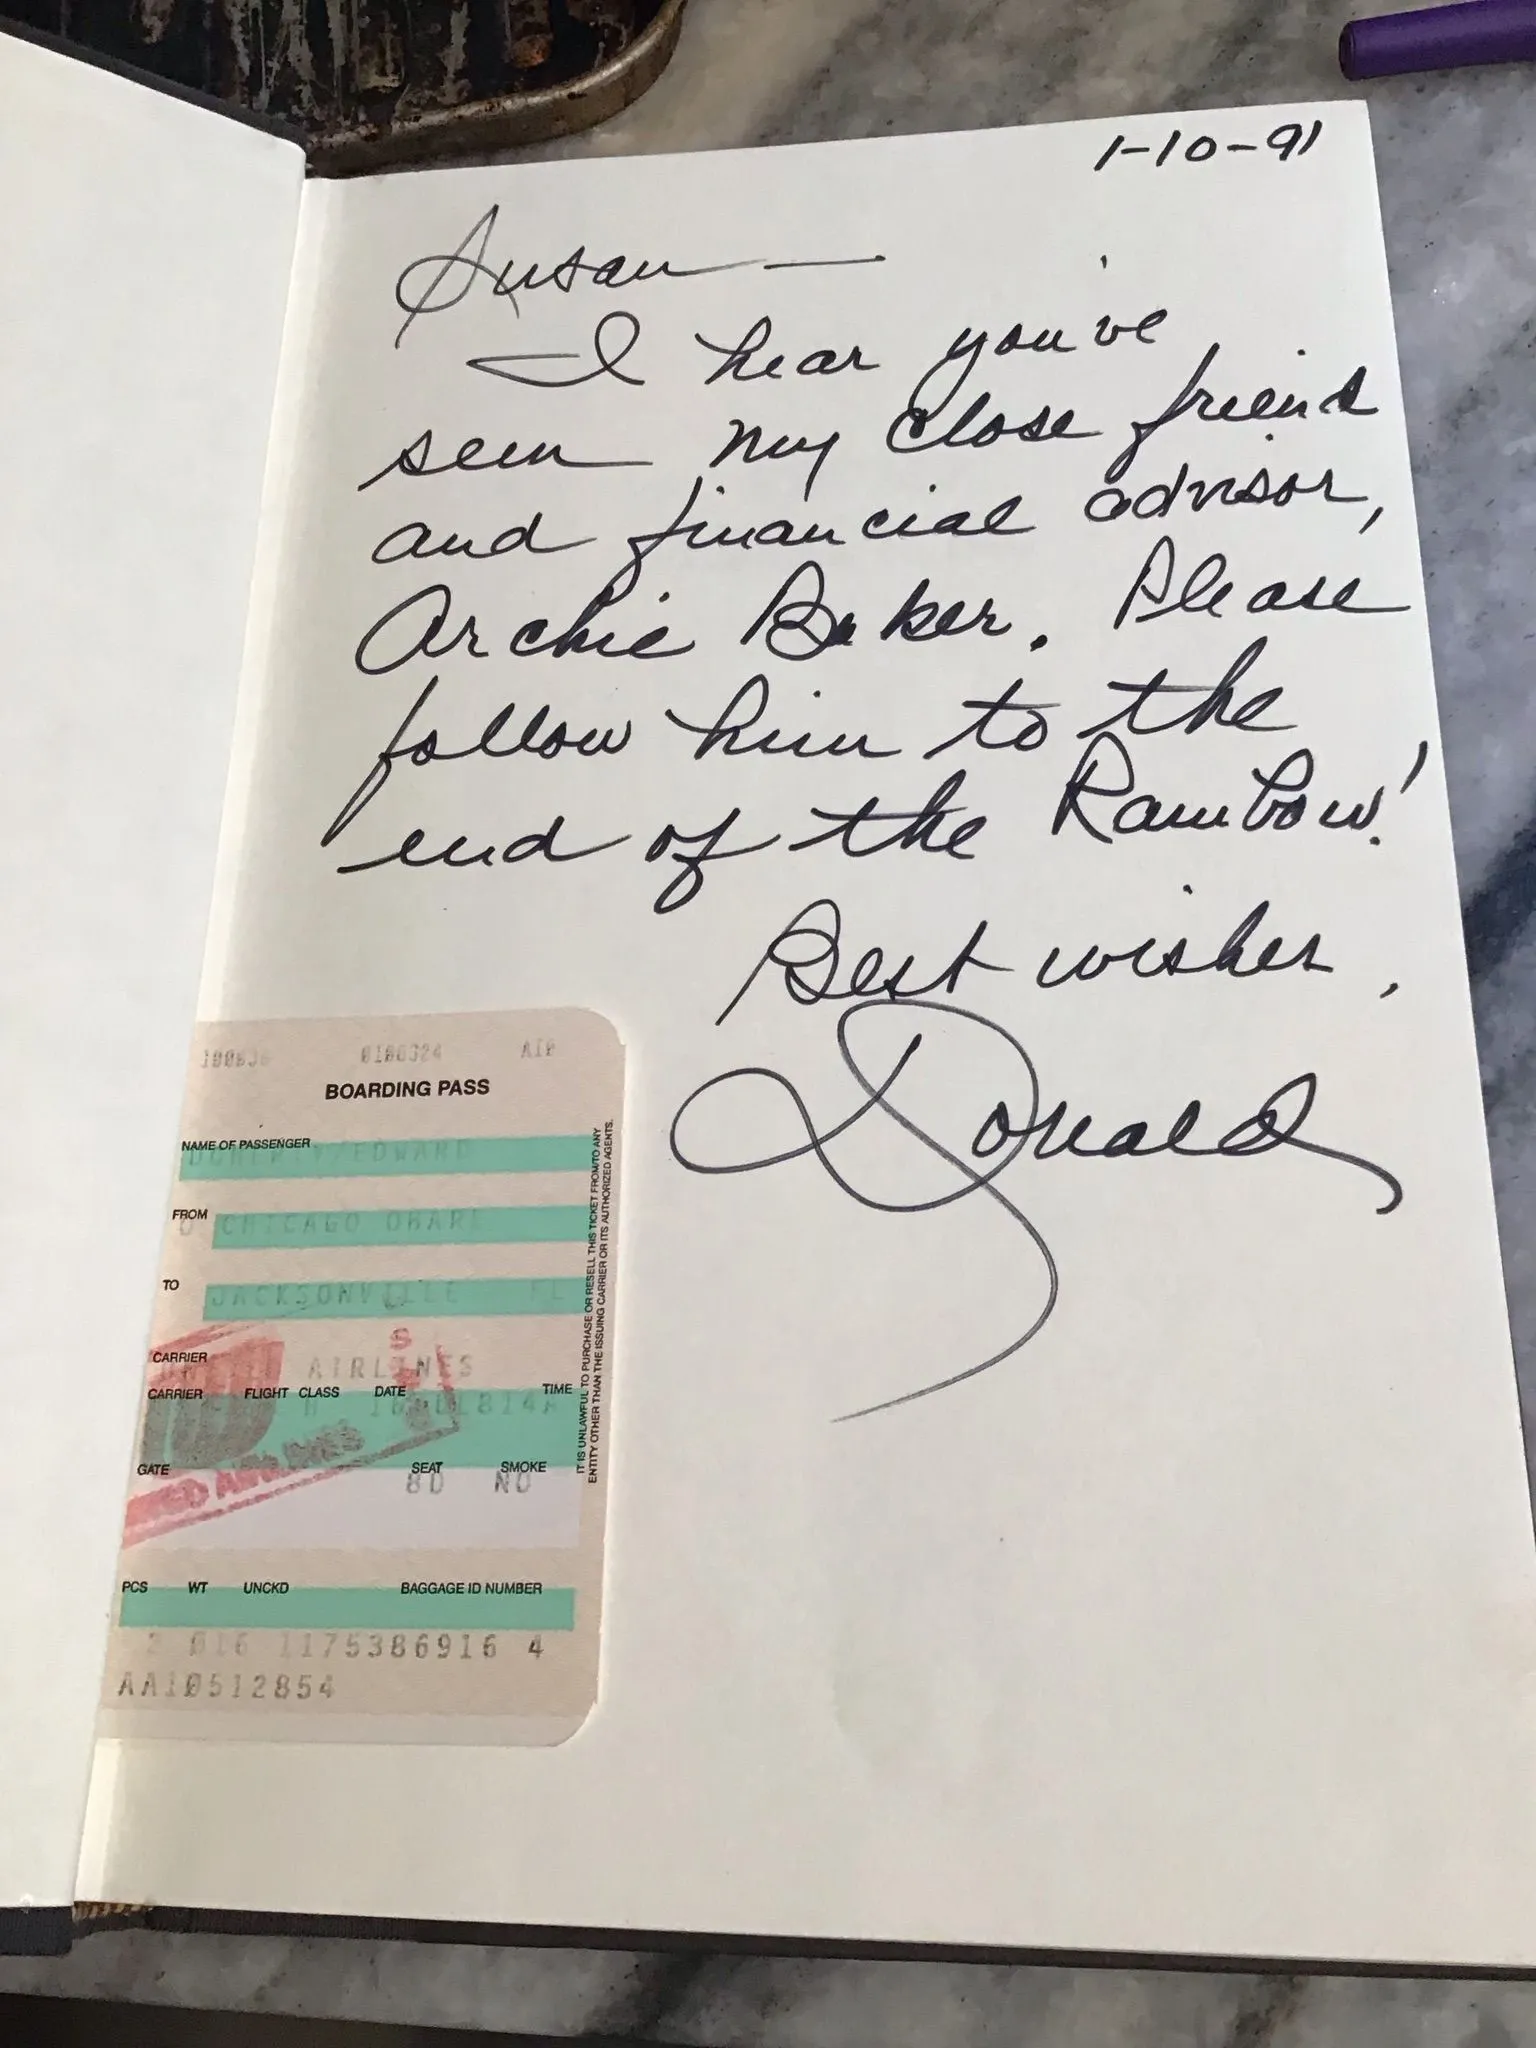 1-10-91
Susan —
I hear you've
seen my close friend
and financial advisor,
Archie Baker. Please
follow him to the
end of the Rainbow!
Best wishes,
Donald
0100324 A10
BOARDING PASS
NAME OF PASSENGER
/EDWARD
FROM
CHICAGO OHARE
TO
JACKSONVILLE FL
CARRIER
AIRLINES
CARRIER FLIGHT CLASS DATE TIME
H 814A
GATE SEAT SMOKE
8D NO
AIRLINES
PCS WT UNCKD BAGGAGE ID NUMBER
2 016 1175386916 4
AA10512854
IT IS UNLAWFUL TO PURCHASE OR RESELL THIS TICKET FROM/TO ANY
ENTITY OTHER THAN THE ISSUING CARRIER OR ITS AUTHORIZED AGENTS.